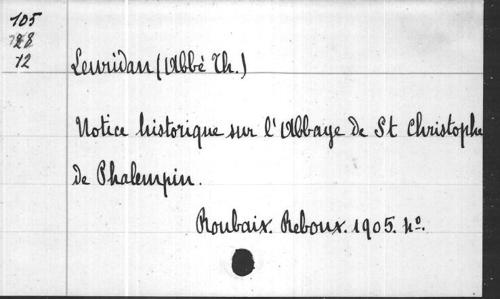 105
28
12
Leuridan (Abbé Th.)
Notice historique sur l'Abbaye de St Christophe
de Phalempin.
Roubaix. Reboux. 1905. 4º.